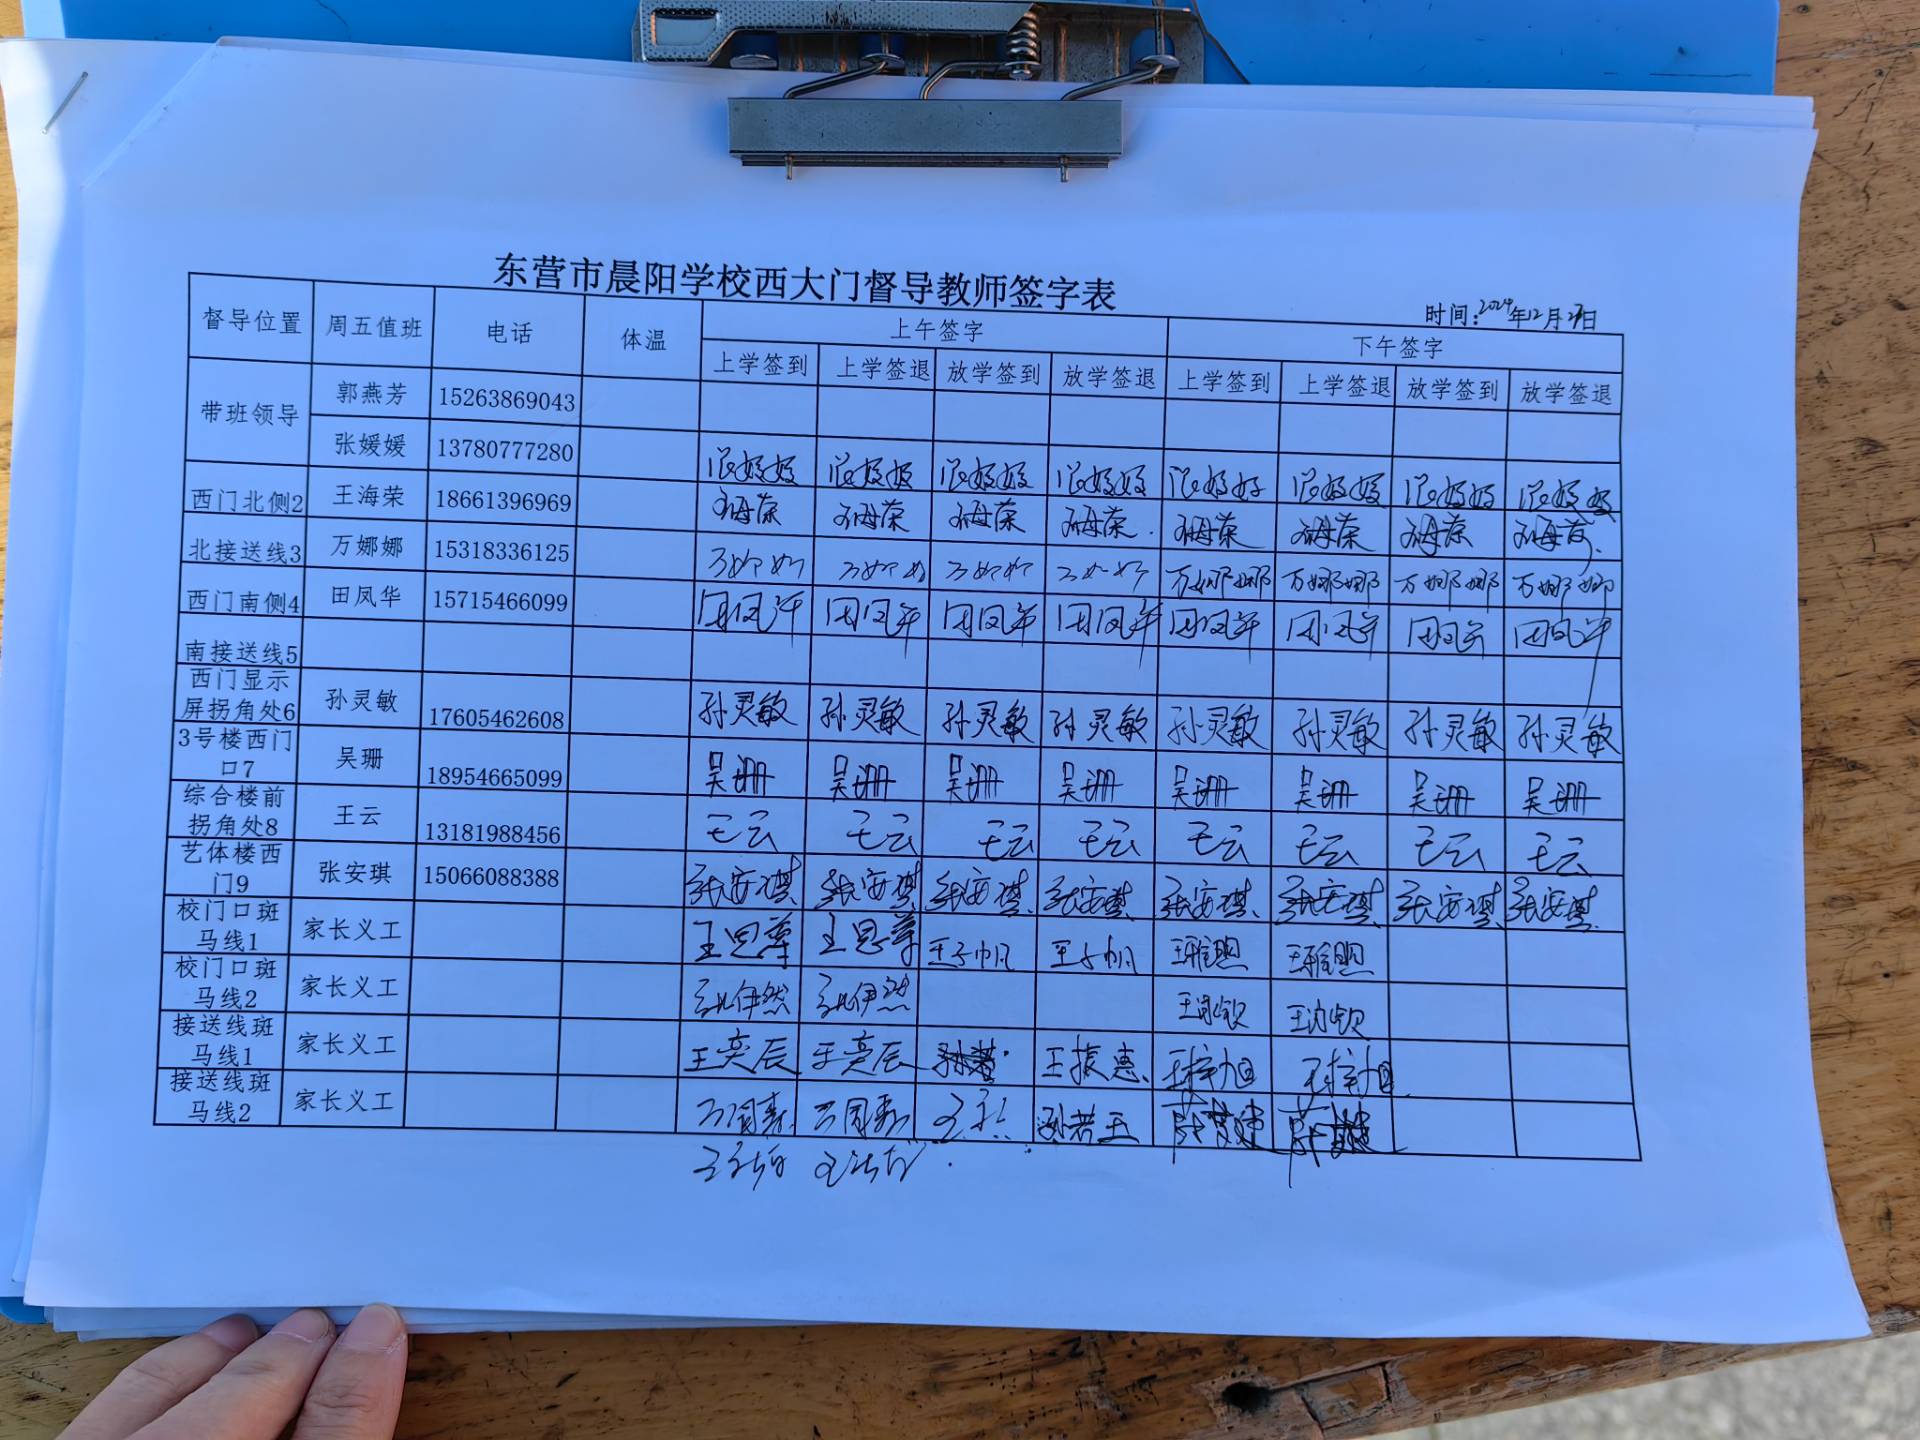 东营市晨阳学校西大门督导教师签字表
时间:2024年12月27日
督导位置 周五值班 电话 体温 上午签字 下午签字
上学签到 上学签退 放学签到 放学签退 上学签到 上学签退 放学签到 放学签退
带班领导 郭燕芳 15263869043
张媛媛 13780777280 张媛媛 张媛媛 张媛媛 张媛媛 张媛媛 张媛媛 张媛媛 张媛媛
西门北侧2 王海荣 18661396969 王海荣 王海荣 王海荣 王海荣 王海荣 王海荣 王海荣 王海荣
北接送线3 万娜娜 15318336125 万娜娜 万娜娜 万娜娜 万娜娜 万娜娜 万娜娜 万娜娜 万娜娜
西门南侧4 田凤华 15715466099 田凤华 田凤华 田凤华 田凤华 田凤华 田凤华 田凤华 田凤华
南接送线5
西门显示
屏拐角处6 孙灵敏 17605462608 孙灵敏 孙灵敏 孙灵敏 孙灵敏 孙灵敏 孙灵敏 孙灵敏 孙灵敏
3号楼西门
口7 吴珊 18954665099 吴珊 吴珊 吴珊 吴珊 吴珊 吴珊 吴珊 吴珊
综合楼前
拐角处8 王云 13181988456 王云 王云 王云 王云 王云 王云 王云 王云
艺体楼西
门9 张安琪 15066088388 张安琪 张安琪 张安琪 张安琪 张安琪 张安琪 张安琪 张安琪
校门口斑
马线1 家长义工 王思尊 王思尊 王子帆 王子帆
校门口斑
马线2 家长义工 张伊然 张伊然
接送线斑
马线1 家长义工 王奕辰 王奕辰 王振惠 王梓旭 王梓旭
接送线斑
马线2 家长义工 孙若玉